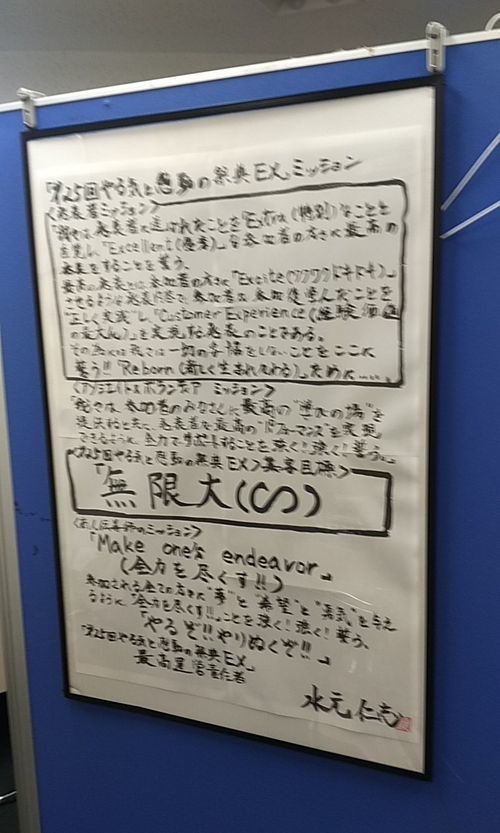 「第25回やる気と感動の祭典EXミッション
<発表者ミッション>
「我々は発表者に選ばれたことを"Extra(特別)なことと
自覚し、"Excellent(優秀)"な参加者の方々に最高の
発表をすることを誓う。
最高の発表とは、参加者の方々に"Excite(ワクワクドキドキ)"
させるような発表内容で、参加者は、参加後学んだことを
"正しく実践"し、"Customer Experience(経験価値
の最大化)"を実現する発表のことである。
その為には我々は一切の妥協をしないことをここに
誓う!!"Reborn(新しく生まれ変わる)"ために……」
<アソシエイト&ボランティア ミッション>
「我々は、参加者のみなさんに最高の"学びの場"を
提供すると共に、発表者が最高の"パフォーマンス"を実現
できるように、全力でサポートすることを強く!強く!誓う。」
<第25回やる気と感動の祭典EX>集客目標>
「無限大(∞)
ミッション>
「Make one's endeavor」
(全力を尽くす!!)
参加される全ての方々に"夢"と"希望"と"勇気"を与え
るように、"全力を尽くす!!"ことを強く!強く!誓う、
"やるぞ!!やりぬくぞ!!"」
「第25回やる気と感動の祭典EX」
最高運営責任者
水元 仁志